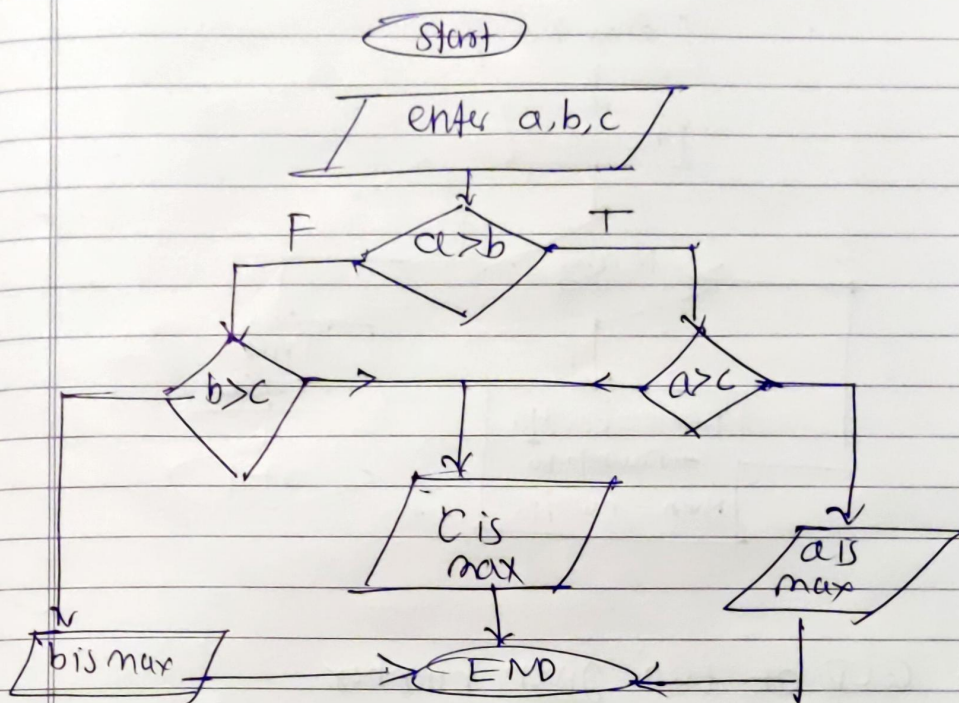 Start
enter a,b,c
F
T
a>b
b>c
a>c
C is
max
a is
max
b is max
END